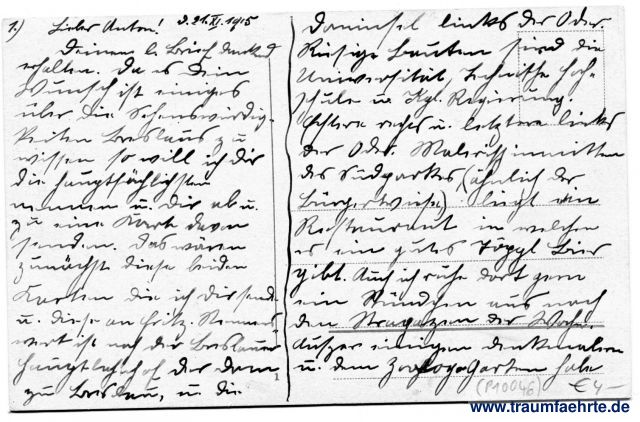 1.) Lieber Anton! d. 21.XI.1915
Deinen l. Brief dankend
erhalten. Da es Dein
Wunsch ist einiges
über die Sehenswürdig-
keiten Breslaus zu
wissen so will ich dir
die hauptsächlichsten
nennen u. dir ab u.
zu eine Karte davon
senden. Das wären
zunächst diese beiden
Karten die ich dir sende
u. diese an Fritz.
wert ist noch der Breslauer
Hauptbahnhof der Dom
zu Breslau, u. die
Dominsel links der Oder.
Riesige Bauten sind die
Universität, technische Hoch-
schule u. Kgl. Regierung.
Erstere rechts u. letztere links
der Oder. Malerisch inmitten
des Südparks (ähnlich der
Bürgerwiese) liegt ein
Restaurant in welchem
es ein gutes Töppl Bier
gibt. Auch ich ruhe dort gern
ein Stündchen aus nach
den Strapazen der Woche.
Außer einigen Denkmälern
u. dem Zoologo Garten habe
(P10046) € 4,-
www.traumfaehrte.de